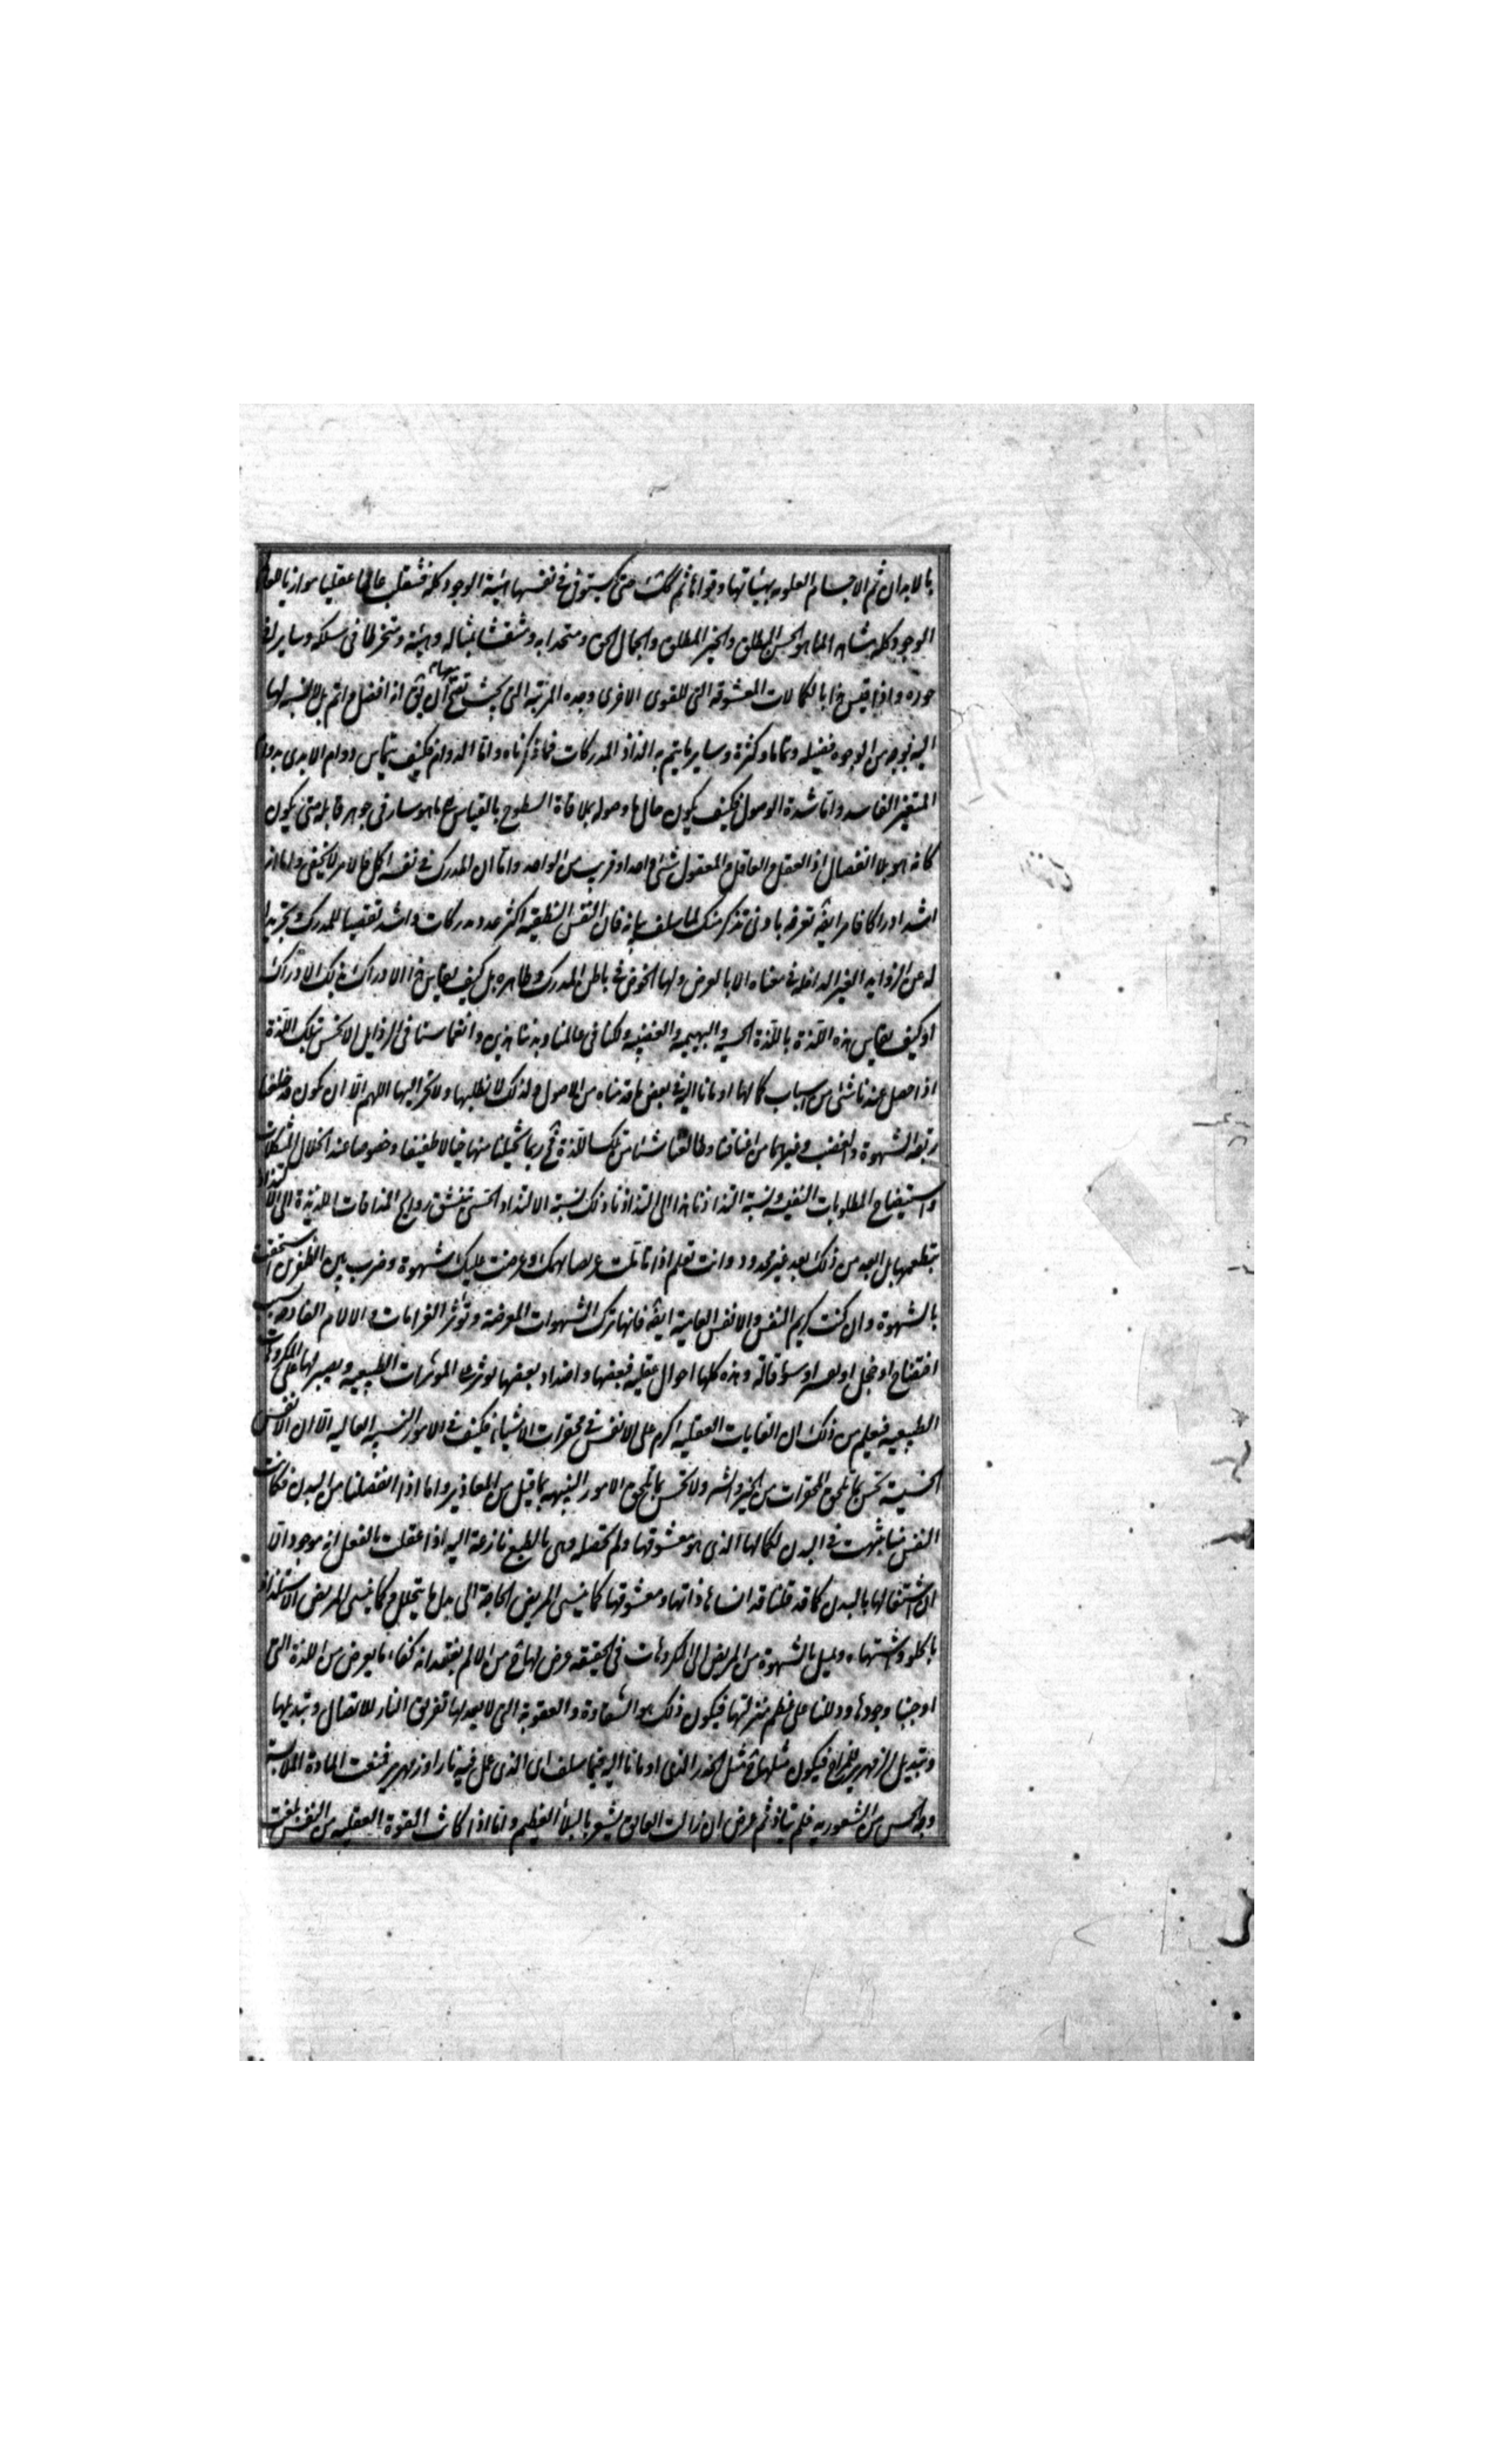 بالابدان ثم الاجسام العلويه بهيئاتها وقواها ثم كذلك حتى يستوفى فى نفسها هيئة الوجود كله فتنقلب عالما عقليا موازيا للعالم
الوجود كله مشاهدا لما هو الحسن المطلق والخير المطلق والجمال الحق ومتحدا به ومنتقشا بمثاله وهيئته ومنخرطا فى سلكه وسايرا فى
جوهره واذا قيس هذا بالكمالات المعشوقه التى للقوى الاخرى وجد هذه المرتبه التى بحيث يقبح معها ان يق انه افضل واتم بل لا نسبه لها
اليه بوجه من الوجوه فضيله وتماما وكثرة وساير ما يتم به الذاذ المدركات مما ذكرناه واما الدوام فكيف يقاس دوام الابدى بدوام
المتغير الفاسد واما شدة الوصول فكيف يكون حال ما وصوله بملاقاة السطوح بالقياس الى ما هو سار فى جوهر قابله حتى يكون
كانه هو بلا انفصال اذ العقل والعاقل والمعقول شئ واحد او قريب من الواحد واما ان المدرك فى نفسه اكمل فالامر لا يخفى واما انه
اشد ادراكا فامر ايضه تعرفه بادنى تذكر منك لما سلف بيانه فان النفس النطقيه اكثر عدد مدركات واشد تقصيا للمدرك وتجريدا
له عن الزوايد الغير الداخله فى معناه الا بالعرض ولها الخوض فى باطن المدرك وظاهره بل كيف يقاس هذا الادراك بذلك الادراك
او كيف يقاس هذه اللذة باللذة الحسيه والبهيميه والغضبيه ولكنا فى عالمنا وبدننا هذين وانغماسنا فى الرذايل لا نحس بتلك اللذة
اذا حصل عندنا شئ من اسباب كمالها اومانا اليه فى بعض ما قدمناه من الاصول ولذلك لا نطلبها ولا نحن اليها اللهم الا ان نكون قد خلعنا
ربقه الشهوة والغضب وغيرهما من اعناقنا وطالعنا شيئا من تلك اللذة فح ربما تخيلنا منها خيالا طفيفا وخصوصا عند انحلال المشكلات
واستيضاح المطلوبات النفيسه ونسبة التذاذنا هذا الى التذاذنا ذلك نسبة الالتذاذ الحسى بتنشق روايح المذاقات اللذيذة الى الالتذاذ
بتطعمها بل ابعد من ذلك بعدا غير محدود وانت تعلم اذا تاملت عويصا يهمك وعرضت عليك شهوة وخيرت بين الظفرين استخففت
بالشهوة وان كنت كريم النفس والانفس العامية ايضه فانها تترك الشهوات المعترضة وتوثر الغرامات والالام الفادحه بسبب
افتضاح او خجل او تعيير او سوء قاله وهذه كلها احوال عقليه فبعضها واضداد بعضها توثر على الموثرات الطبيعيه ويصبر لها على المكروهات
الطبيعيه فيعلم من ذلك ان الغايات العقليه اكرم على الانفس فى محقرات الاشياء فكيف فى الامور النبيهه العاليه الا ان الانفس
الخسيسة تحس بما يلحق المحقرات من الخير والشر ولا تحس بما يلحق الامور النبيهه لما قيل من المعاذير واما اذا انفصلنا من البدن وكانت
النفس منا تنبهت فى البدن لكمالها الذى هو معشوقها ولم تحصله وهى بالطبع نازعة اليه اذا عقلت بالفعل انه موجود الا
ان اشتغالها بالبدن كما قد قلنا قد انساها ذاتها ومعشوقها كما ينسى المريض الحاجة الى بدل ما يتحلل وكما ينسى المريض الاستلذاذ
بالحلو واشتهاءه ويميل بالشهوة من المريض الى المكروهات فى الحقيقه عرض لها ح من الالم بفقدانه كفاء ما يعرض من اللذة التى
اوجبنا وجودها ودللنا على عظم منزلتها فيكون ذلك هو الشقاوة والعقوبة التى لا يعدلها تفريق النار للاتصال وتبديلها
وتبديل الزمهرير للمزاج فيكون مثلها ح مثل الخدر الذى اومانا اليه فيما سلف او الذى عمل فيه نار او زمهرير فمنعت المادة الملابسة
وجه الحس من الشعور به فلم يتاذ ثم عرض ان زالت العايق فشعر بالبلاء العظيم واما اذا كانت القوة العقليه من النفس بلغت